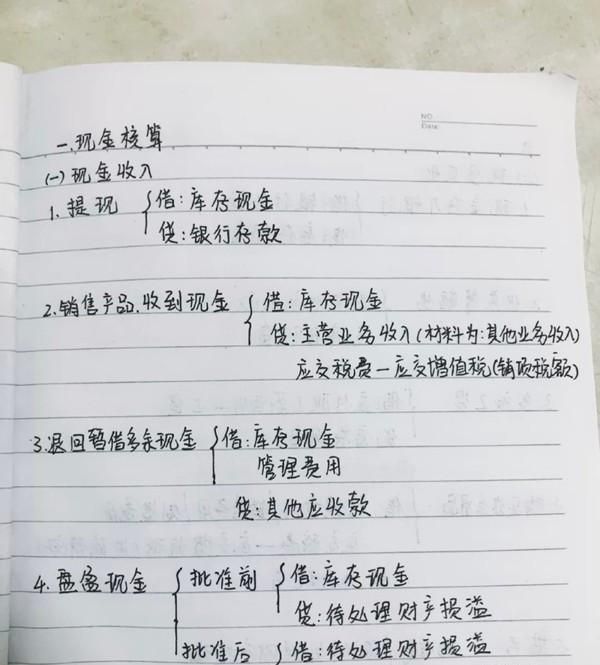 NO.
Date
一.现金核算
(一)现金收入
1.提现 借:库存现金
贷:银行存款
2.销售产品.收到现金 借:库存现金
贷:主营业务收入(材料为:其他业务收入)
应交税费—应交增值税(销项税额)
3.退回暂借多余现金 借:库存现金
管理费用
贷:其他应收款
4.盘盈现金 批准前 借:库存现金
贷:待处理财产损溢
批准后 借:待处理财产损溢